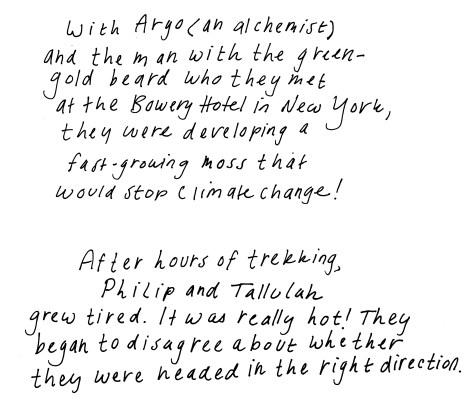 With Argo (an alchemist)
and the man with the green-
gold beard who they met
at the Bowery Hotel in New York,
they were developing a
fast-growing moss that
would stop climate change!
After hours of trekking,
Philip and Tallulah
grew tired. It was really hot! They
began to disagree about whether
they were headed in the right direction.